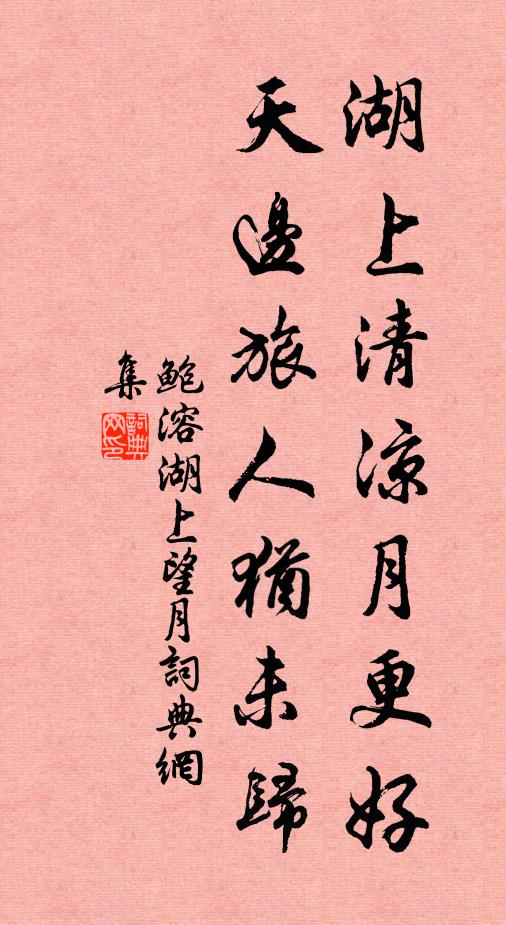 湖上清涼月更好
天邊旅人猶未歸
鮑溶湖上望月詞典網
集
詞典
网印